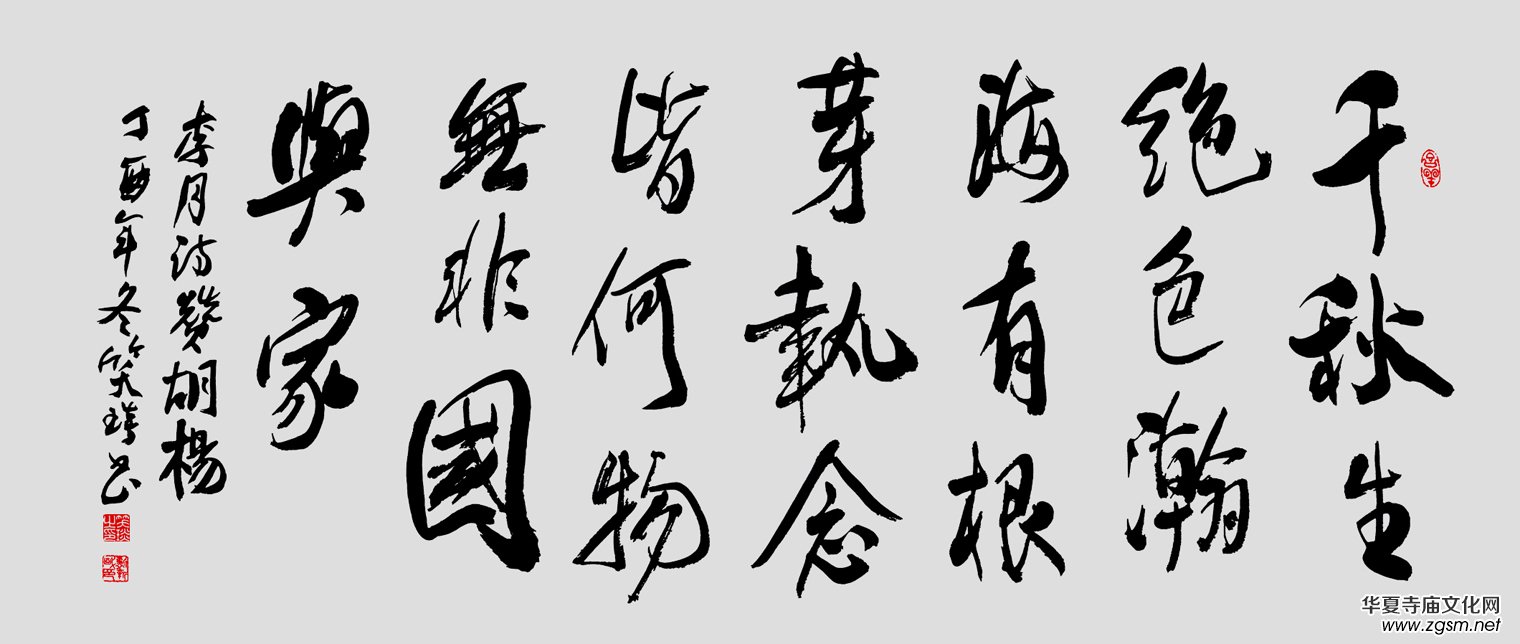 千秋生
絶色瀚
海有根
芽執念
皆何物
無非國
與家
李月詩贊胡楊
丁酉年冬笑琦书
华夏寺庙文化网
www.zgsm.net